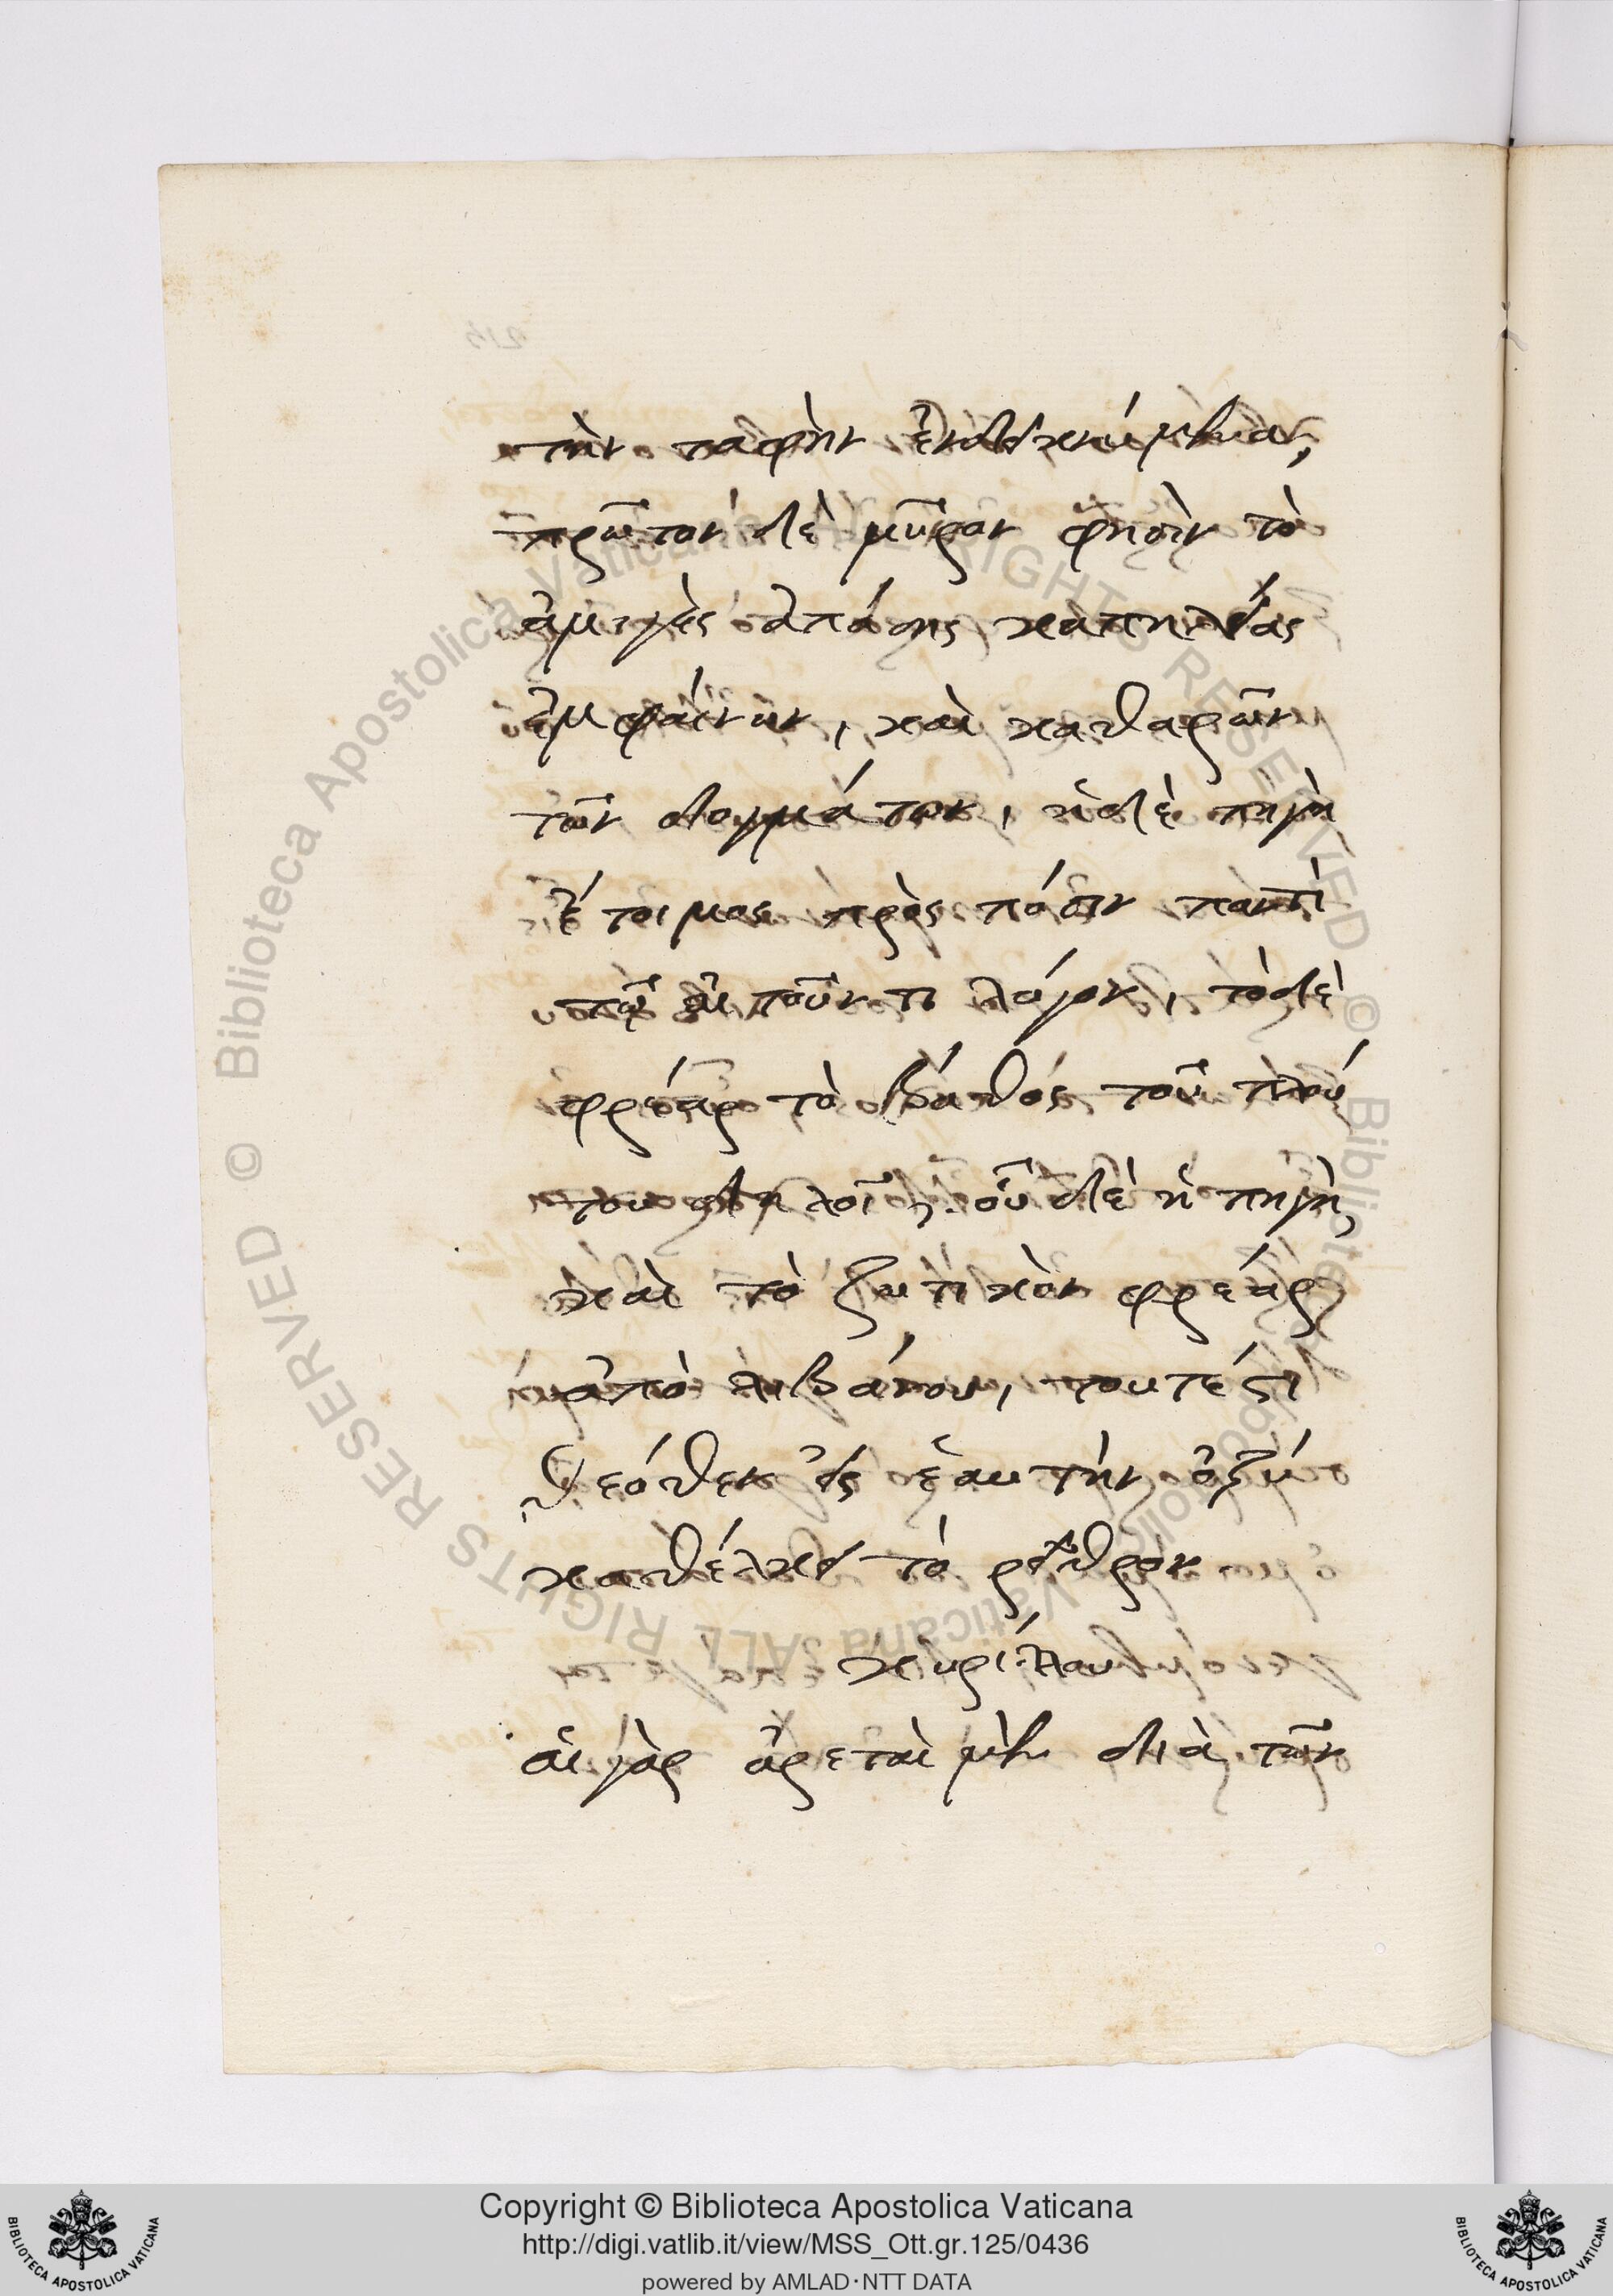 τὴν ταφὴν ἐνδεικνύμεναι,
πρῶτον δὲ μῦραν φησὶν τὸ
ἀμιγὲς ἁπάσης καπηλείας
ἐμφαίνων, καὶ καθαρῶν
τῶν δογμάτων, ἡ δὲ πηγὴ
ἕτοιμος πρὸς πόσιν παντὶ
τῷ αἰτοῦντι λόγον, τὸ δὲ
φρέαρ τὸ βάθος τοῦ
του δηλοῖ, οὐδὲ ἡ πηγὴ,
καὶ τὸ ζωτικὸν φρέαρ
ἀπὸ λιβάνου, τουτέστι
θεόθεν εἰς ἑαυτὴν
καθέλκει τὸ ῥεῖθρον
κυρίλλου
αἱ γὰρ ἀρεταὶ μὲν διὰ τῶν
Copyright © Biblioteca Apostolica Vaticana
http://digi.vatlib.it/view/MSS_Ott.gr.125/0436
powered by AMLAD·NTT DATA
BIBLIOTECA APOSTOLICA VATICANA
BIBLIOTECA APOSTOLICA VATICANA
© Biblioteca Apostolica Vaticana ALL RIGHTS RESERVED © Biblioteca Apostolica Vaticana ALL RIGHTS RESERVED